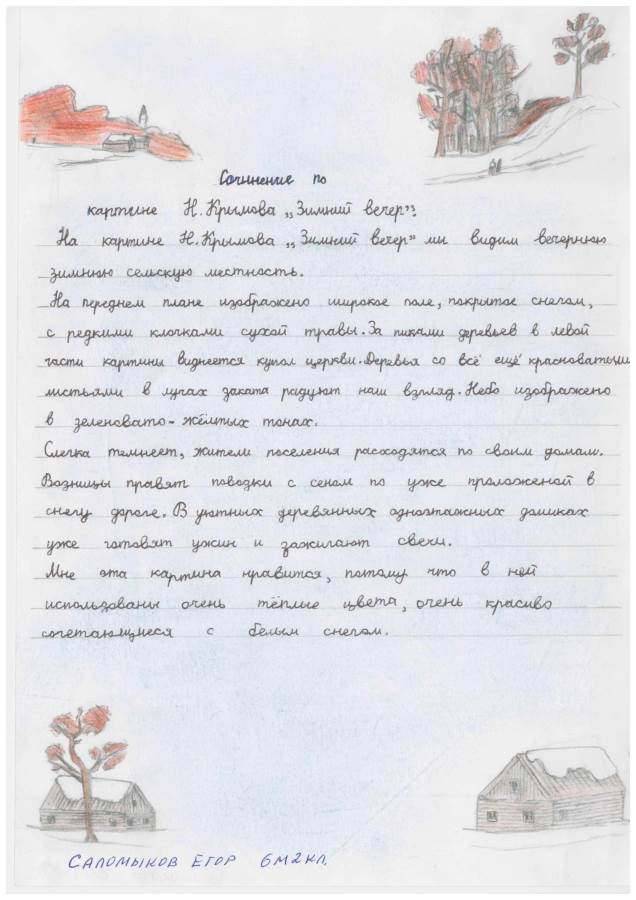 Сочинение по
картине Н. Крымова „Зимний вечер".
На картине Н. Крымова „Зимний вечер" мы видим вечернюю
зимнюю сельскую местность.
На переднем плане изображено широкое поле, покрытое снегом,
с редкими клочками сухой травы. За пиками деревьев в левой
части картины виднеется купол церкви. Деревья со всё ещё красноватыми
листьями в лучах заката радуют наш взгляд. Небо изображено
в зеленовато-жёлтых тонах.
Слегка темнеет, жители поселения расходятся по своим домам.
Возницы правят повозки с сеном по уже проложеной в
снегу дороге. В уютных деревянных одноэтажных домиках
уже готовят ужин и зажигают свечи.
Мне эта картина нравится, потому что в ней
использованы очень тёплые цвета, очень красиво
сочетающиеся с белым снегом.
Саломыков Егор 6м2кл.